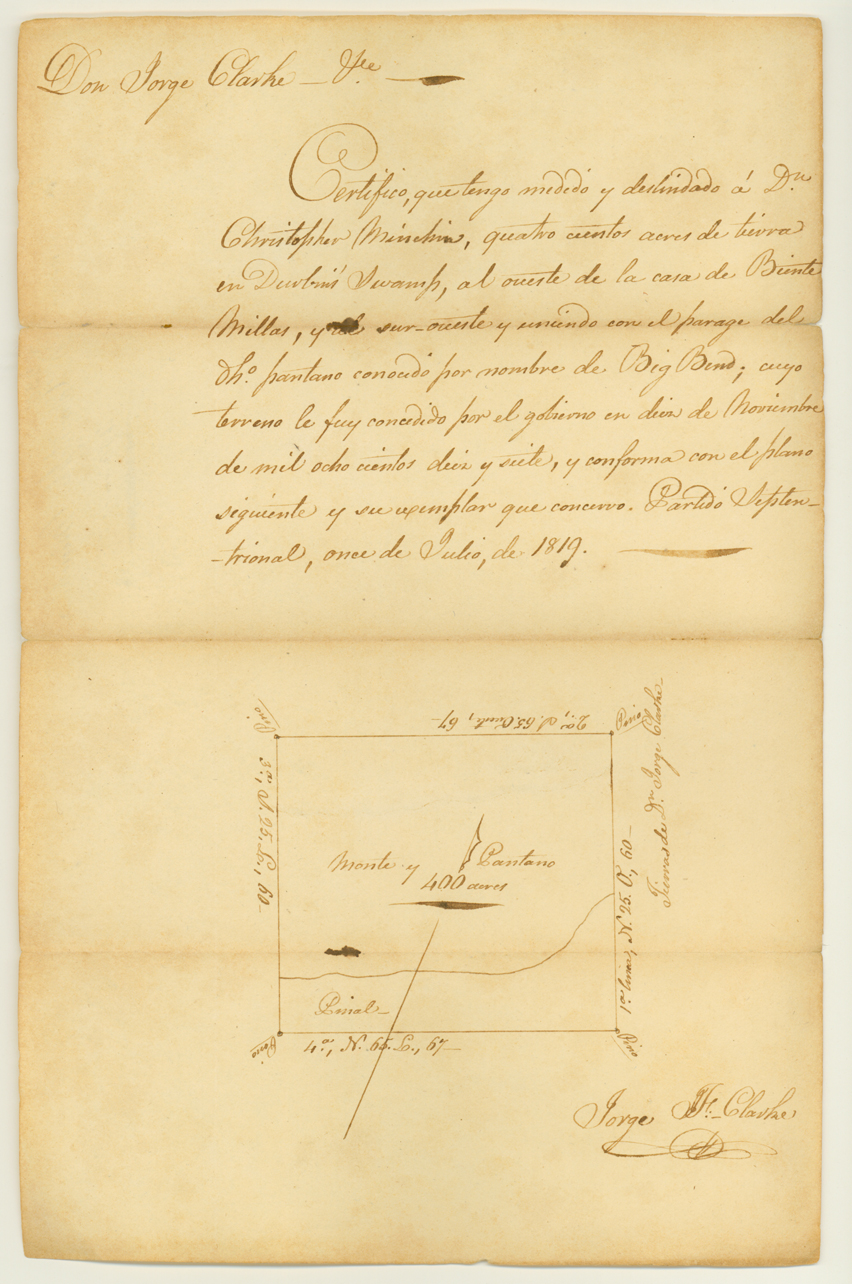 Don Jorge Clarke – &ce
Certifico, que tengo medido y deslindado á Dn
Christopher Minchin, quatro cientos acres de tierra
en Durbin's Swamp, al oueste de la casa de Biente
Millas, y al sur-oueste y uniendo con el parage del
dho. pantano conocido por nombre de Big Bend; cuyo
terreno le fuy concedido por el gobierno en diez de Noviembre
de mil ocho cientos diez y siete, y conforma con el plano
siguiente y su exemplar que concervo. Partido Septen-
-trional, once de Julio, de 1819.
Pino
2a., S. 65. Oueste, 67–
Pino
3a., S. 25. E., 60–
Monte y Pantano
400 acres
1a. linea, N. 25. O., 60–
Tierras de Dn. Jorge Clarke–
Pinal–
Pino
4a., N. 65. E., 67–
Pino
Jorge J. F. Clarke